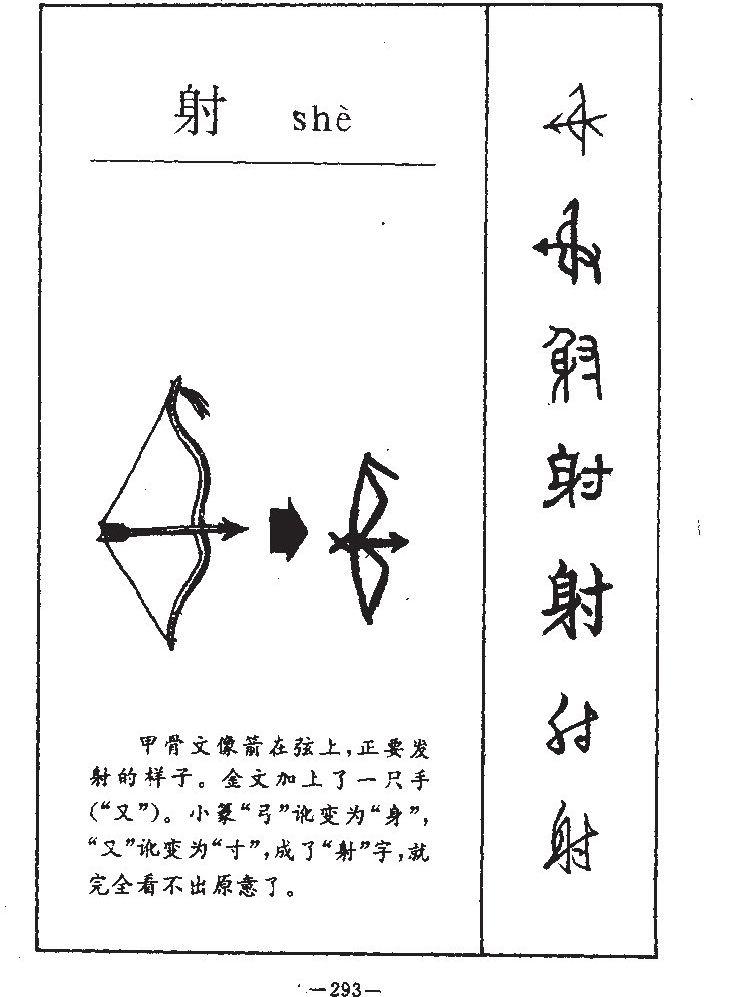 射 shè
甲骨文像箭在弦上，正要发
射的样子。金文加上了一只手
（“又”）。小篆“弓”讹变为“身”，
“又”讹变为“寸”，成了“射”字，就
完全看不出原意了。
射
射
射
射
—293—